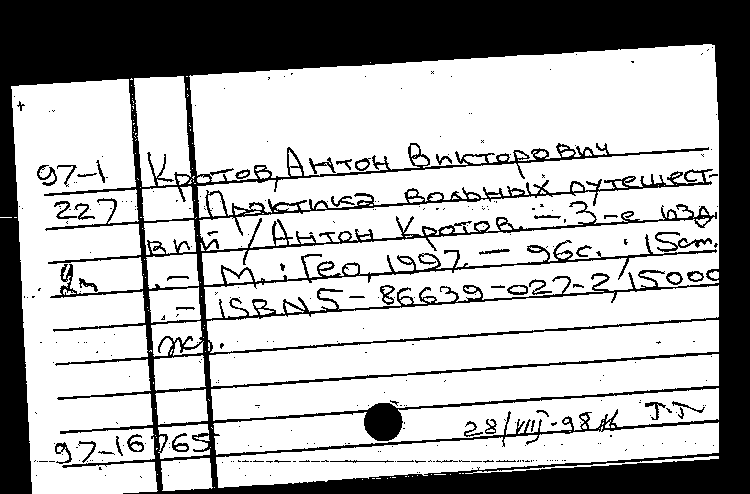 97-1 Кротов, Антон Викторович
227 Практика вольных путешест-
вий / Антон Кротов. — 3-е изд
. — М. : Гео, 1997. — 96с. ; 15см.
. — ISBN 5-86639-027-2, 15000
экз.
97-16765
28/VIII-98 Г.Г.